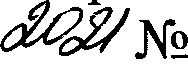 2021 №